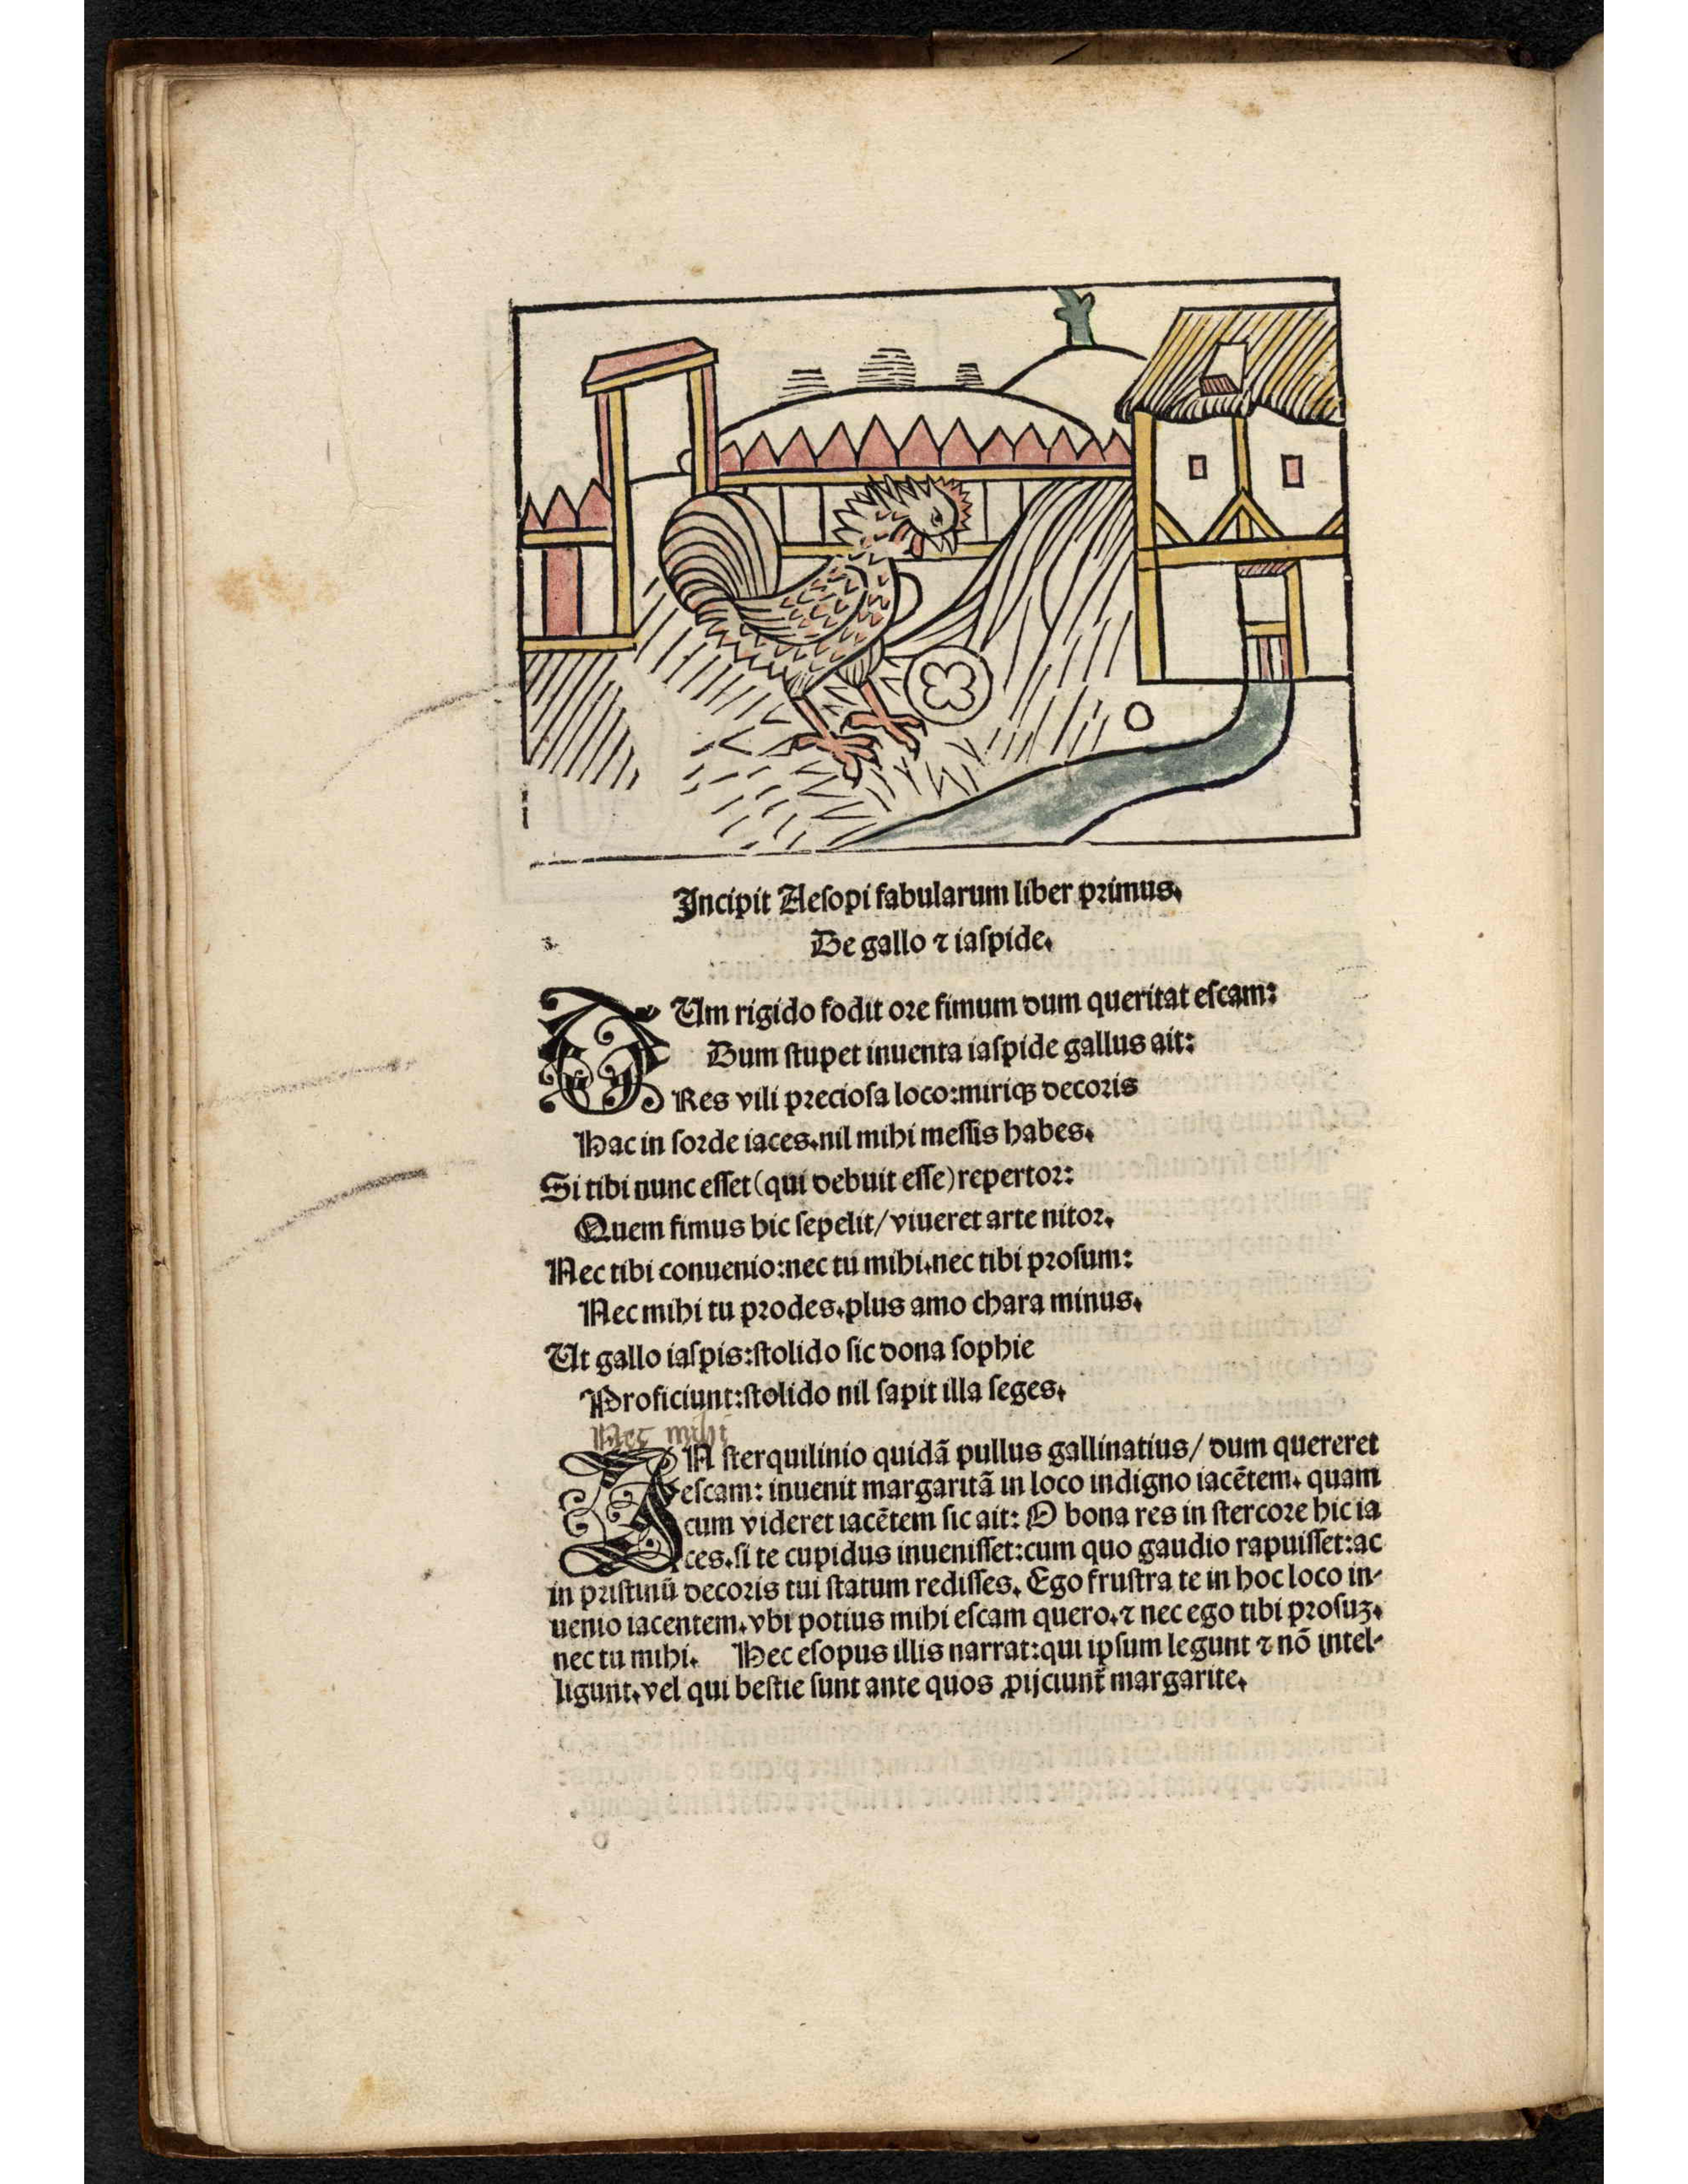 Incipit Aesopi fabularum liber primus.
De gallo ⁊ iaspide.
DUm rigido fodit ore fimum dum queritat escam:
Dum stupet inuenta iaspide gallus ait:
Res vili preciosa loco:miriqꝫ decoris
Hac in sorde iaces.nil mihi messis habes.
Si tibi nunc esset (qui debuit esse) repertor:
Quem fimus hic sepelit/viueret arte nitor.
Nec tibi conuenio:nec tu mihi.nec tibi prosum:
Nec mihi tu prodes.plus amo chara minus.
Ut gallo iaspis:stolido sic dona sophie
Proficiunt:stolido nil sapit illa seges.
Nec mihi
IN sterquilinio quidã pullus gallinatius/ dum quereret
escam: inuenit margaritã in loco indigno iacẽtem. quam
cum videret iacẽtem sic ait: O bona res in stercore hic ia
ces.si te cupidus inuenisset:cum quo gaudio rapuisset:ac
in pristinũ decoris tui statum redisses. Ego frustra te in hoc loco in-
uenio iacentem.vbi potius mihi escam quero.⁊ nec ego tibi prosuꝫ.
nec tu mihi. Hec esopus illis narrat:qui ipsum legunt ⁊ nõ intel-
ligunt.vel qui bestie sunt ante quos ꝓijciunt᷑ margarite.